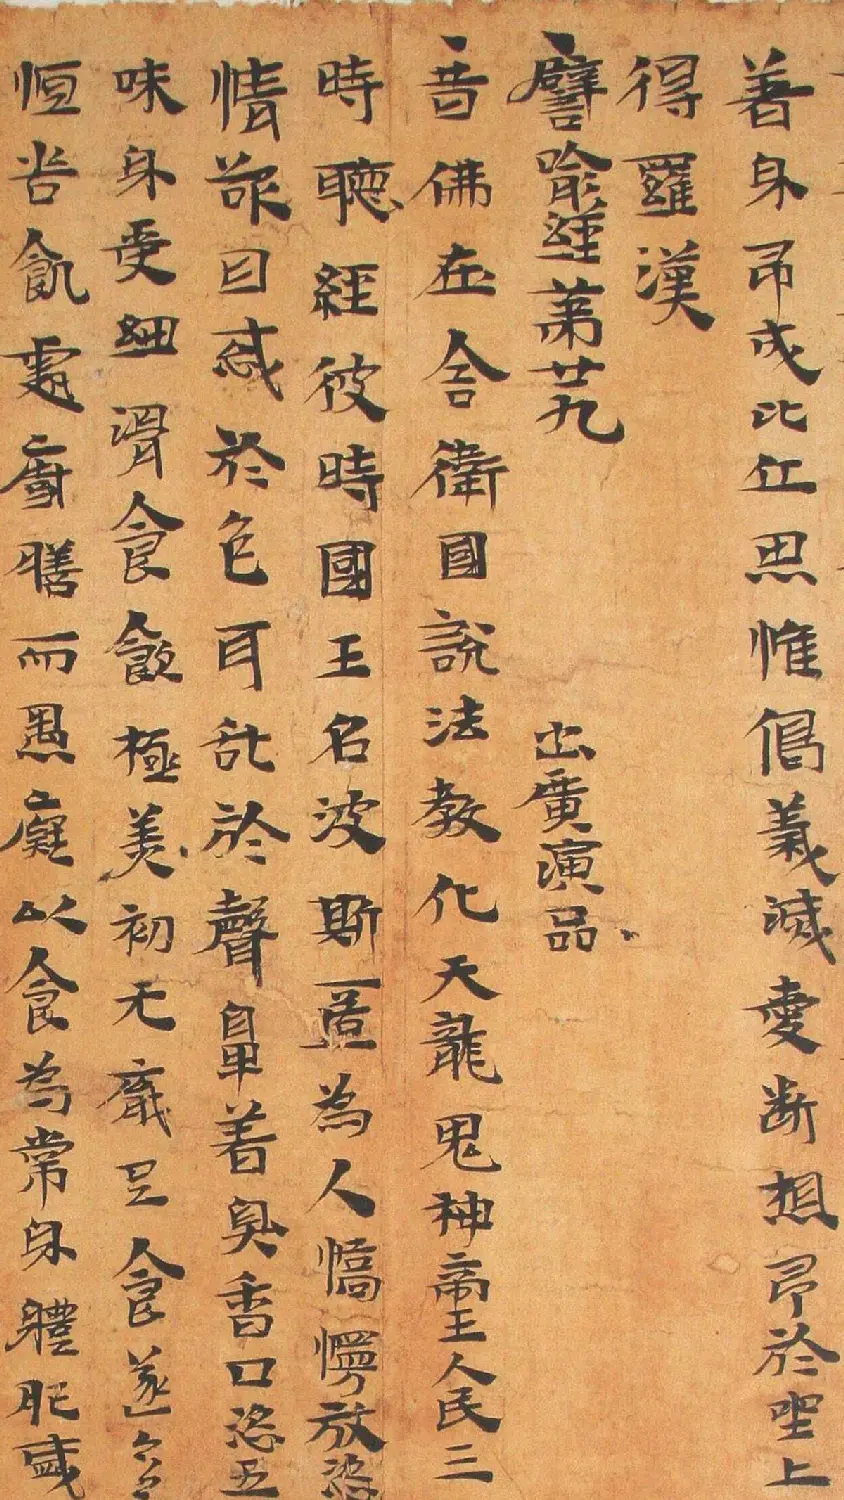 著身即成比丘思惟偈義滅愛断想即於坐上
得羅漢
譬喻經第廿九 出廣演品
昔佛在舍衛國說法教化天龍鬼神帝王人民三
時聽經彼時國王名波斯匿為人憍慢放恣
情欲目惑於色耳乱於聲鼻着臭香口恣五
味身受細滑食飲極美初无厭足食遂
恒苦飢虛廚膳而愚癡以食為常身體肥盛